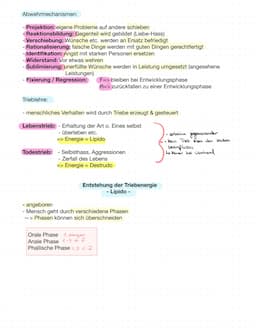 Abwehrmechanismen:
- Projektion: eigene Probleme auf andere schieben
- Reaktionsbildung: Gegenteil wird gebildet (Liebe-Hass)
- Verschiebung: Wünsche etc. werden an Ersatz befriedigt
- Rationalisierung: falsche Dinge werden mit guten Dingen gerechtfertigt
- Identifikation: Angst mit starken Personen ersetzen
- Widerstand: Vor etwas wehren
- Sublimierung: unerfüllte Wünsche werden in Leistung umgesetzt (angesehene
Leistungen)
- Fixierung / Regression: F=> bleiben bei Entwicklungsphase
R=> zurückfallen zu einer Entwicklungsphase
Trieblehre:
- menschliches Verhalten wird durch Triebe erzeugt & gesteuert
Lebenstrieb: - Erhaltung der Art u. Eines selbst
- überleben etc.
=> Energie = Lipido
Todestrieb: - Selbsthass, Aggressionen
- Zerfall des Lebens
=> Energie = Destrudo
Entstehung der Triebenergie
- Lipido -
- angeboren
- Mensch geht durch verschiedene Phasen
--> Phasen können sich überschneiden
Orale Phase
Anale Phase
Phallische Phase